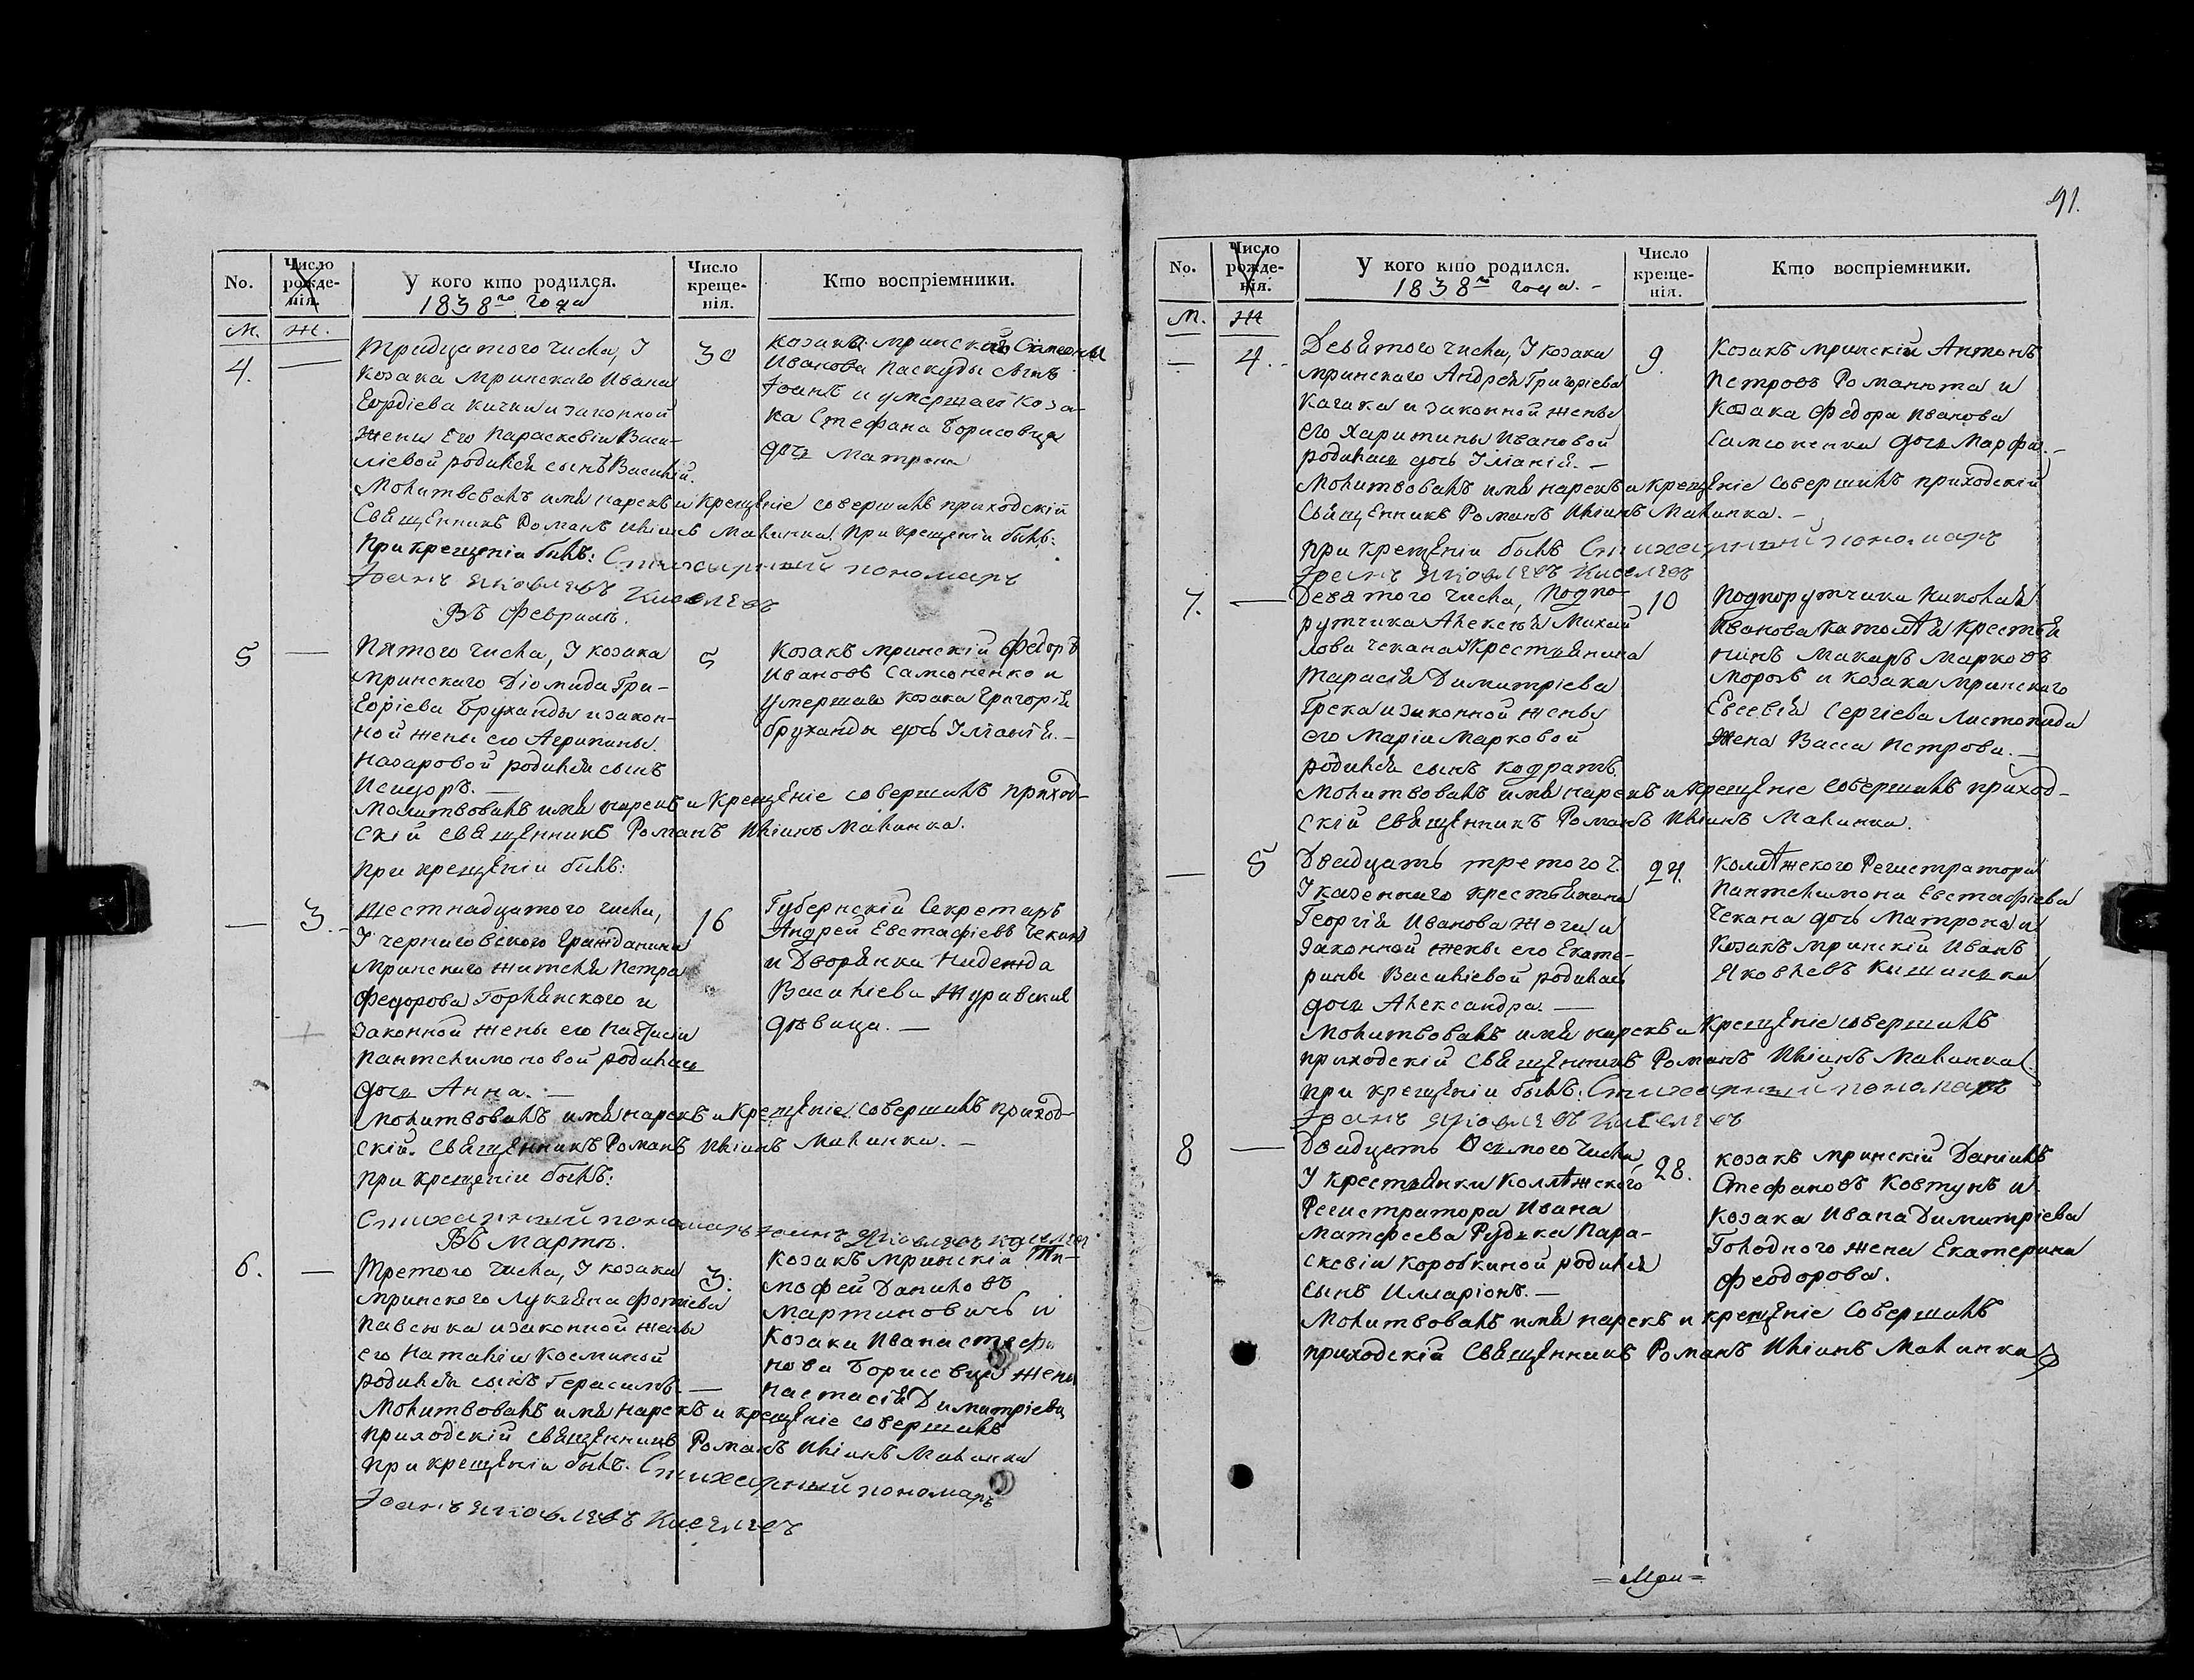 91.
No.
Число рожденія.
У кого кто родился.
1838го года
Число крещенія.
Кто воспріемники.
М. Ж.
4. —
Тридцатого числа, У
козака мринскаго Ивана
Гордіева Кички и законной
жены его Параскевіи Васи-
ліевой родился сынъ Василій.
30
Козака мринскаго
Иванова Паскуды сынъ
Іоанъ и умершаго коза-
ка Стефана Борисовца
дочь Матрона
Молитвовалъ имя нарекъ и Крещеніе совершилъ приходскій
Священникъ Романъ Иліинъ Малинка. При крещеніи былъ:
При крещеніи былъ: Стихарный пономарь
Іоанъ Яковлевъ Киселевъ
Въ Февралѣ.
5 —
Пятого числа, У козака
мринскаго Діомида Гри-
горіева Бруханды и закон-
ной жены его Агрипины
Назаровой родился сынъ
Исидоръ. —
5
Козакъ мринскій Федоръ
Ивановъ Самсоненко и
умершаго козака Григорія
Бруханды дочь Уліанія. —
Молитвовалъ имя нарекъ и Крещеніе совершилъ приход-
скій священникъ Романъ Иліинъ Малинка.
При крещеніи былъ:
— 3. -
Шестнадцатого числа,
У черниговского гражданина
мринскаго жителя Петра
Федорова Горлянского и
законной жены его
Пантелимоновой родилась
дочь Анна. —
16
Губернскій Секретарь
Андрей Евстафіевъ Чеканъ
и Дворянка Надежда
Василіева Журавская
дѣвица. —
Молитвовалъ имя нарекъ и Крещеніе совершилъ приход-
скій Священникъ Романъ Иліинъ Малинка. —
При крещеніи былъ:
Стихарный пономарь Іоанъ Яковлевъ
Въ Мартѣ.
6. —
Третого числа, У козака
мринского Лукіяна Фотіева
Павсюка и законной жены
его Наталіи Косминой
родился сынъ Герасимъ. —
3.
Козакъ мринскій Ти-
мофей Даниловъ
Мартиновичъ и
Козака Ивана Стефа
нова Борисовца жена
Настасія Димитріева
Молитвовалъ имя нарекъ и крещеніе совершилъ
приходскій священникъ Романъ Иліинъ Малинка
При крещеніи былъ. Стихарный пономарь
Іоанъ Яковлевъ Киселевъ
No.
Число рожденія.
У кого кто родился.
1838го года. -
Число крещенія.
Кто воспріемники.
М. Ж
— 4. -
Девятого числа, У козака
мринскаго Андрея Григоріева
Качака и законной жены
его Харитины Ивановой
родилась дочь Уліанія. —
9.
Козакъ мринскій Антонъ
Петровъ Романюта и
Козака Федора Иванова
Самсоненка дочь Марфа. -
Молитвовалъ имя нарекъ и крещеніе совершилъ приходскій
Священникъ Романъ Иліинъ Малинка. —
При крещеніи былъ Стихарный пономарь
Іоанъ Яковлевъ Киселевъ
7. —
Девятого числа, Подпо-
рутчика Алексѣя Михай
лова Чекана Крестьянина
Тарасія Димитріева
Грека и законной жены
его Маріи Марковой
родился сынъ Кодратъ.
10
Подпорутчика Николая
Иванова крестья
нинъ Макаръ Марковъ
Морозъ и козака мринскаго
Евсевія Сергіева Листопада
Жена Васса Петрова. —
Молитвовалъ имя нарекъ и крещеніе совершилъ приход-
скій священникъ Романъ Иліинъ Малинка.
— 5
Двадцать третого ч.
У казенного крестьянина
Георгія Иванова Жоги и
законной жены его Екате-
рины Василіевой родилась
дочь Александра. —
24.
Колѣжского Регистратора
Пантелимона Евстафіева
Чекана дочь Матрона и
Козакъ мринскій Иванъ
Яковлевъ
Молитвовалъ имя нарекъ и Крещеніе совершилъ
приходскій Священникъ Романъ Иліинъ Малинка.
при крещеніи былъ: Стихарный пономарь
Іоанъ Яковлевъ Киселевъ
8 —
Двадцать осмого числа,
У крестьянки Колѣжского
Регистратора Ивана
Матфеева Рудька Пара-
скевіи Коробкиной родился
сынъ Илларіонъ. —
28.
Козакъ мринскій Даніилъ
Стефановъ Ковтунъ и
Козака Ивана Димитріева
Голодного жена Екатерина
Феодорова.
Молитвовалъ имя нарекъ и крещеніе совершилъ
приходскій Священникъ Романъ Иліинъ Малинка
= Мри =